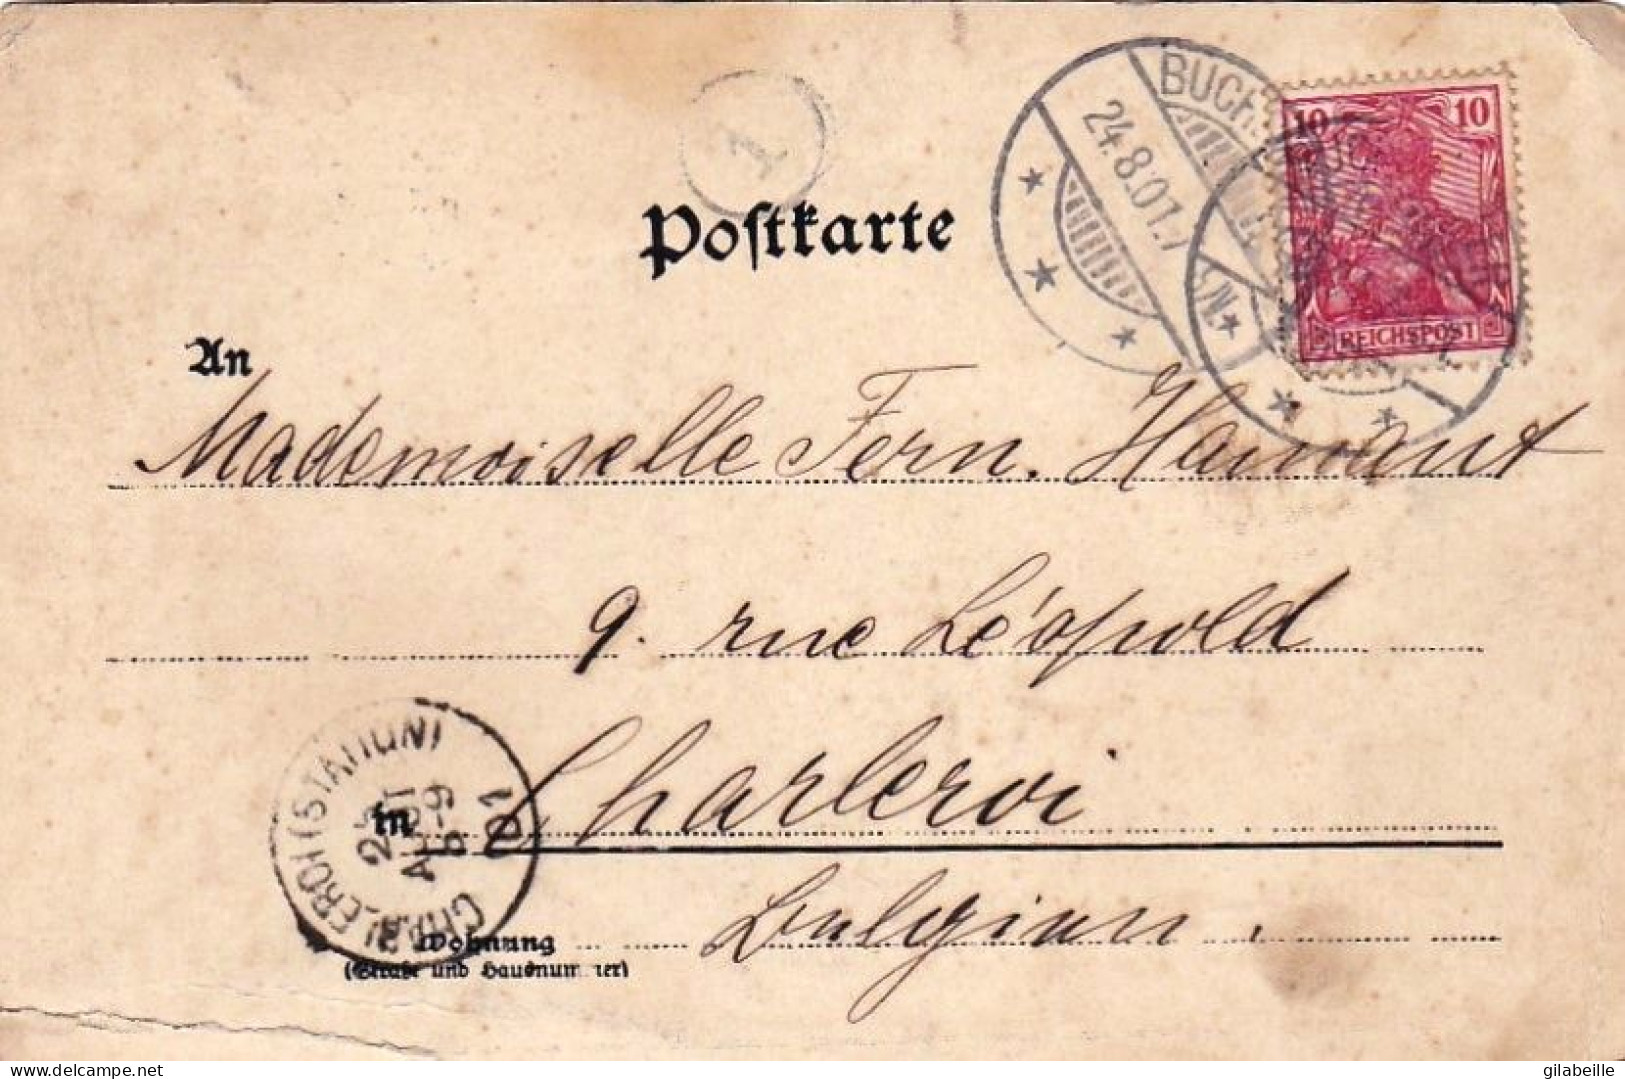 1
Postkarte
BUCH
24.8.01.7
N.
10 10
REICHSPOST
An
Mademoiselle Fern. Hainaut
9. rue Léopold
in Charleroi
Belgien.
CHARLEROI (STATION)
25
AOUT
8-9
01
Wohnung
(Straße und Hausnummer)
delcampe.net
gilabeille